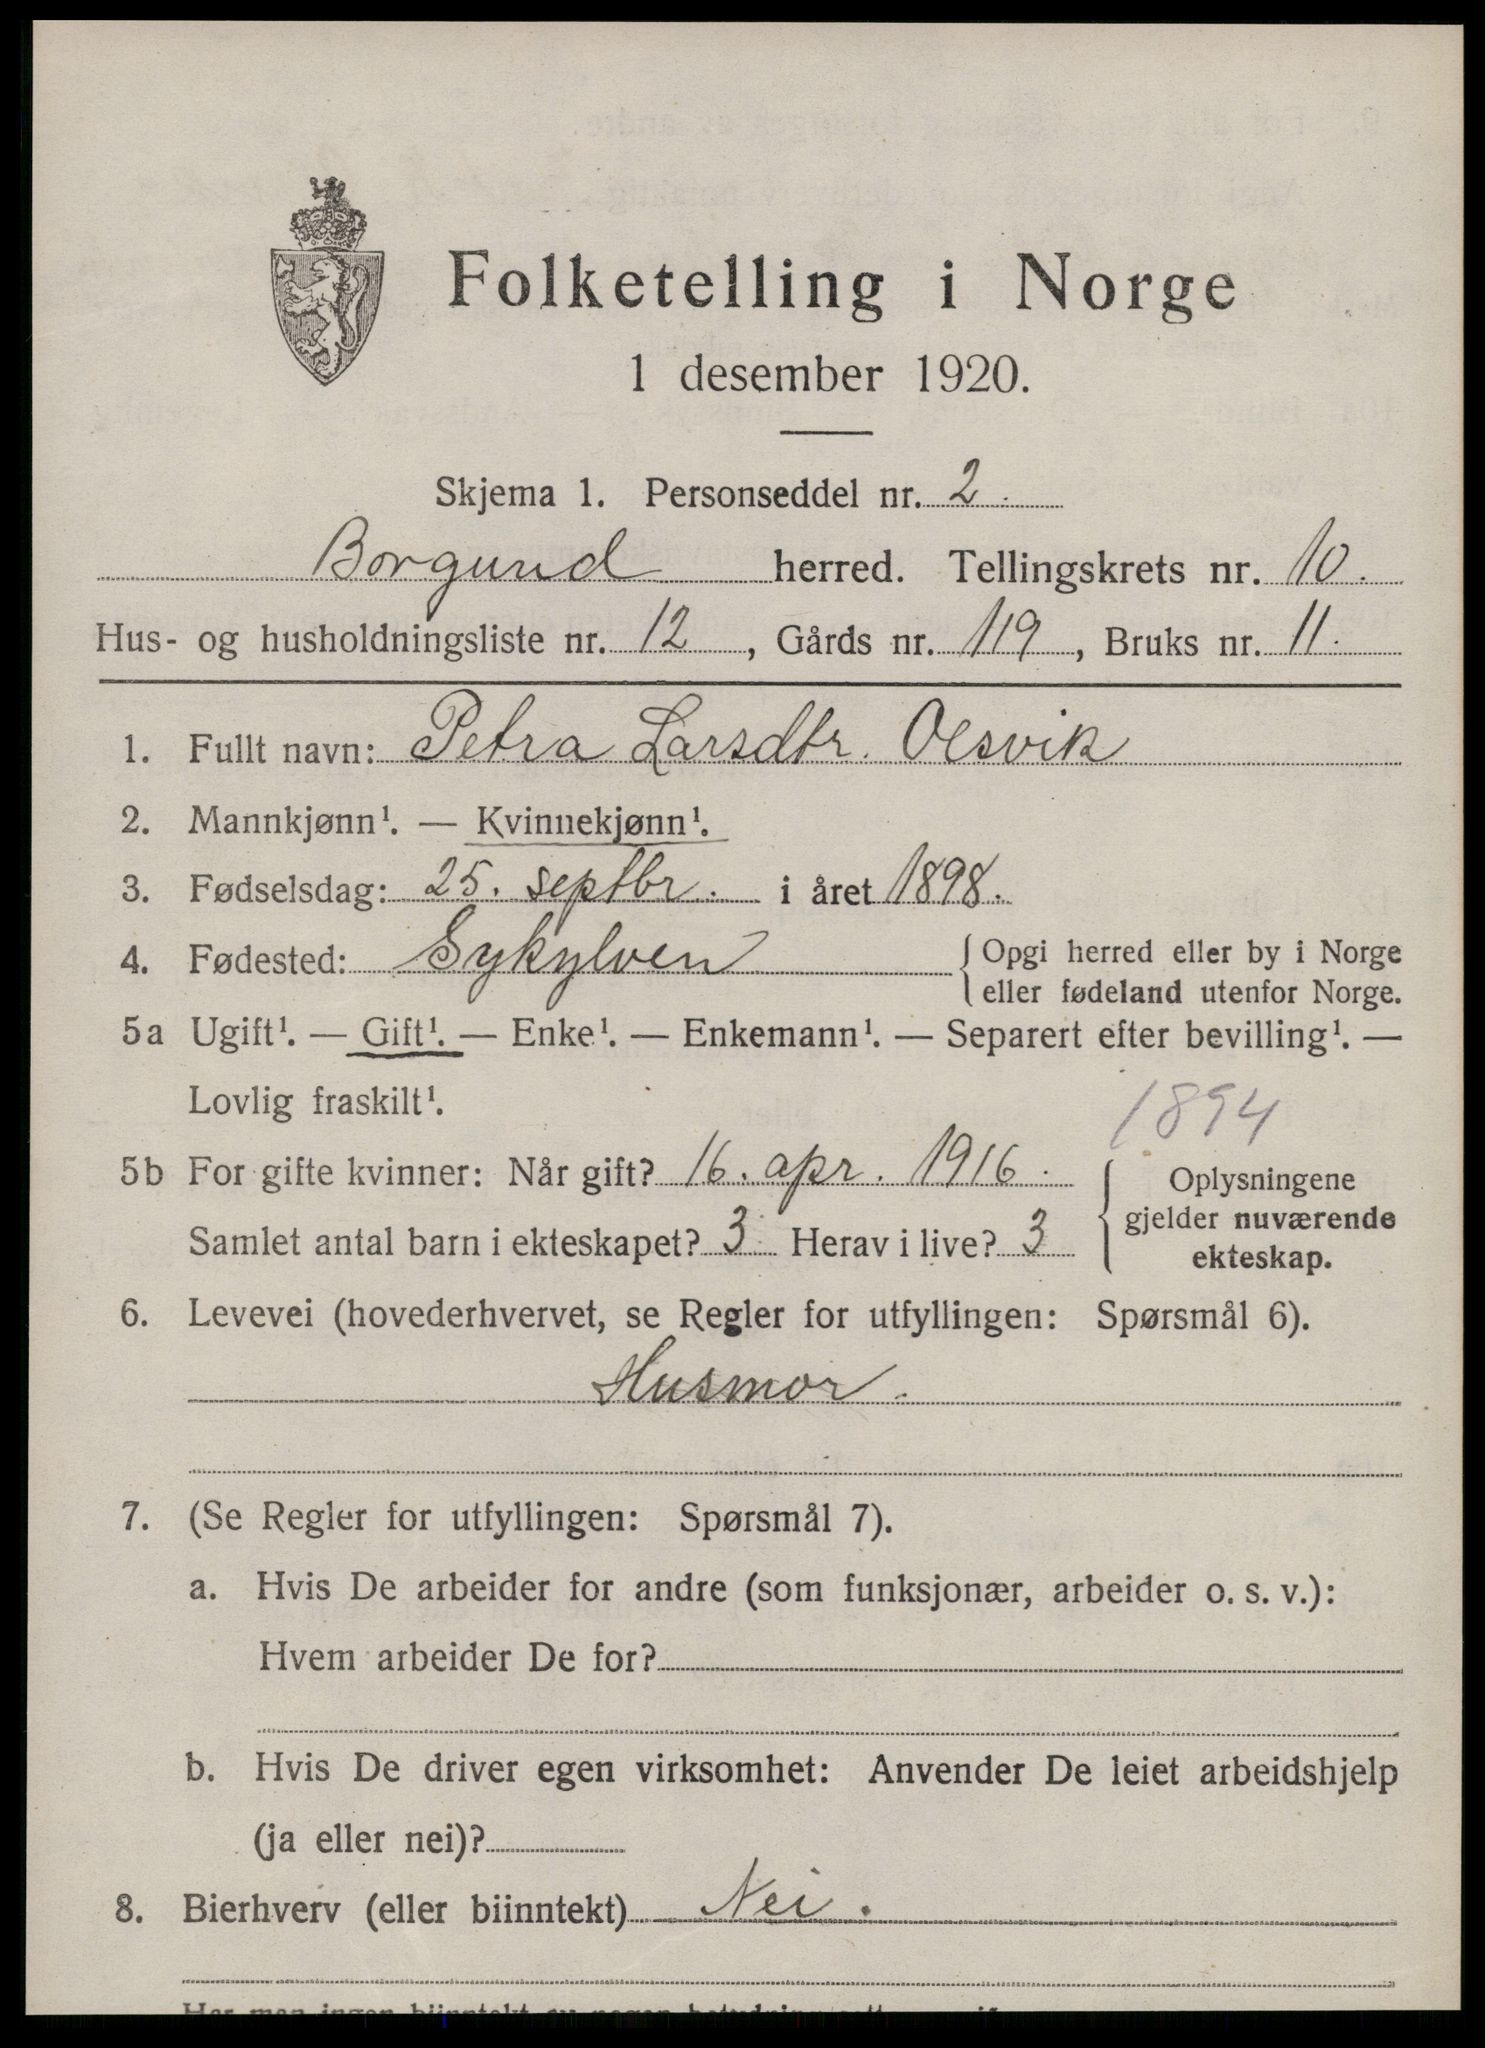 Folketelling i Norge
1 desember 1920.
Skjema 1. Personseddel nr. 2.
Borgund herred. Tellingskrets nr. 10.
Hus- og husholdningsliste nr. 12, Gårds nr. 119, Bruks nr. 11.
1. Fullt navn: Petra Larsdtr. Olsvik
2. Mannkjønn¹. — Kvinnekjønn¹.
3. Fødselsdag: 25. septbr. i året 1898.
4. Fødested: Sykylven { Opgi herred eller by i Norge
eller fødeland utenfor Norge.
5a Ugift¹. — Gift¹. — Enke¹. — Enkemann¹. — Separert efter bevilling¹. —
Lovlig fraskilt¹.
1894
5b For gifte kvinner: Når gift? 16. apr. 1916.
Samlet antal barn i ekteskapet? 3 Herav i live? 3
{ Oplysningene
gjelder nuværende
ekteskap.
6. Levevei (hovederhvervet, se Regler for utfyllingen: Spørsmål 6).
Husmor.
7. (Se Regler for utfyllingen: Spørsmål 7).
a. Hvis De arbeider for andre (som funksjonær, arbeider o. s. v.):
Hvem arbeider De for?
b. Hvis De driver egen virksomhet: Anvender De leiet arbeidshjelp
(ja eller nei)?
8. Bierhverv (eller biinntekt) Nei.